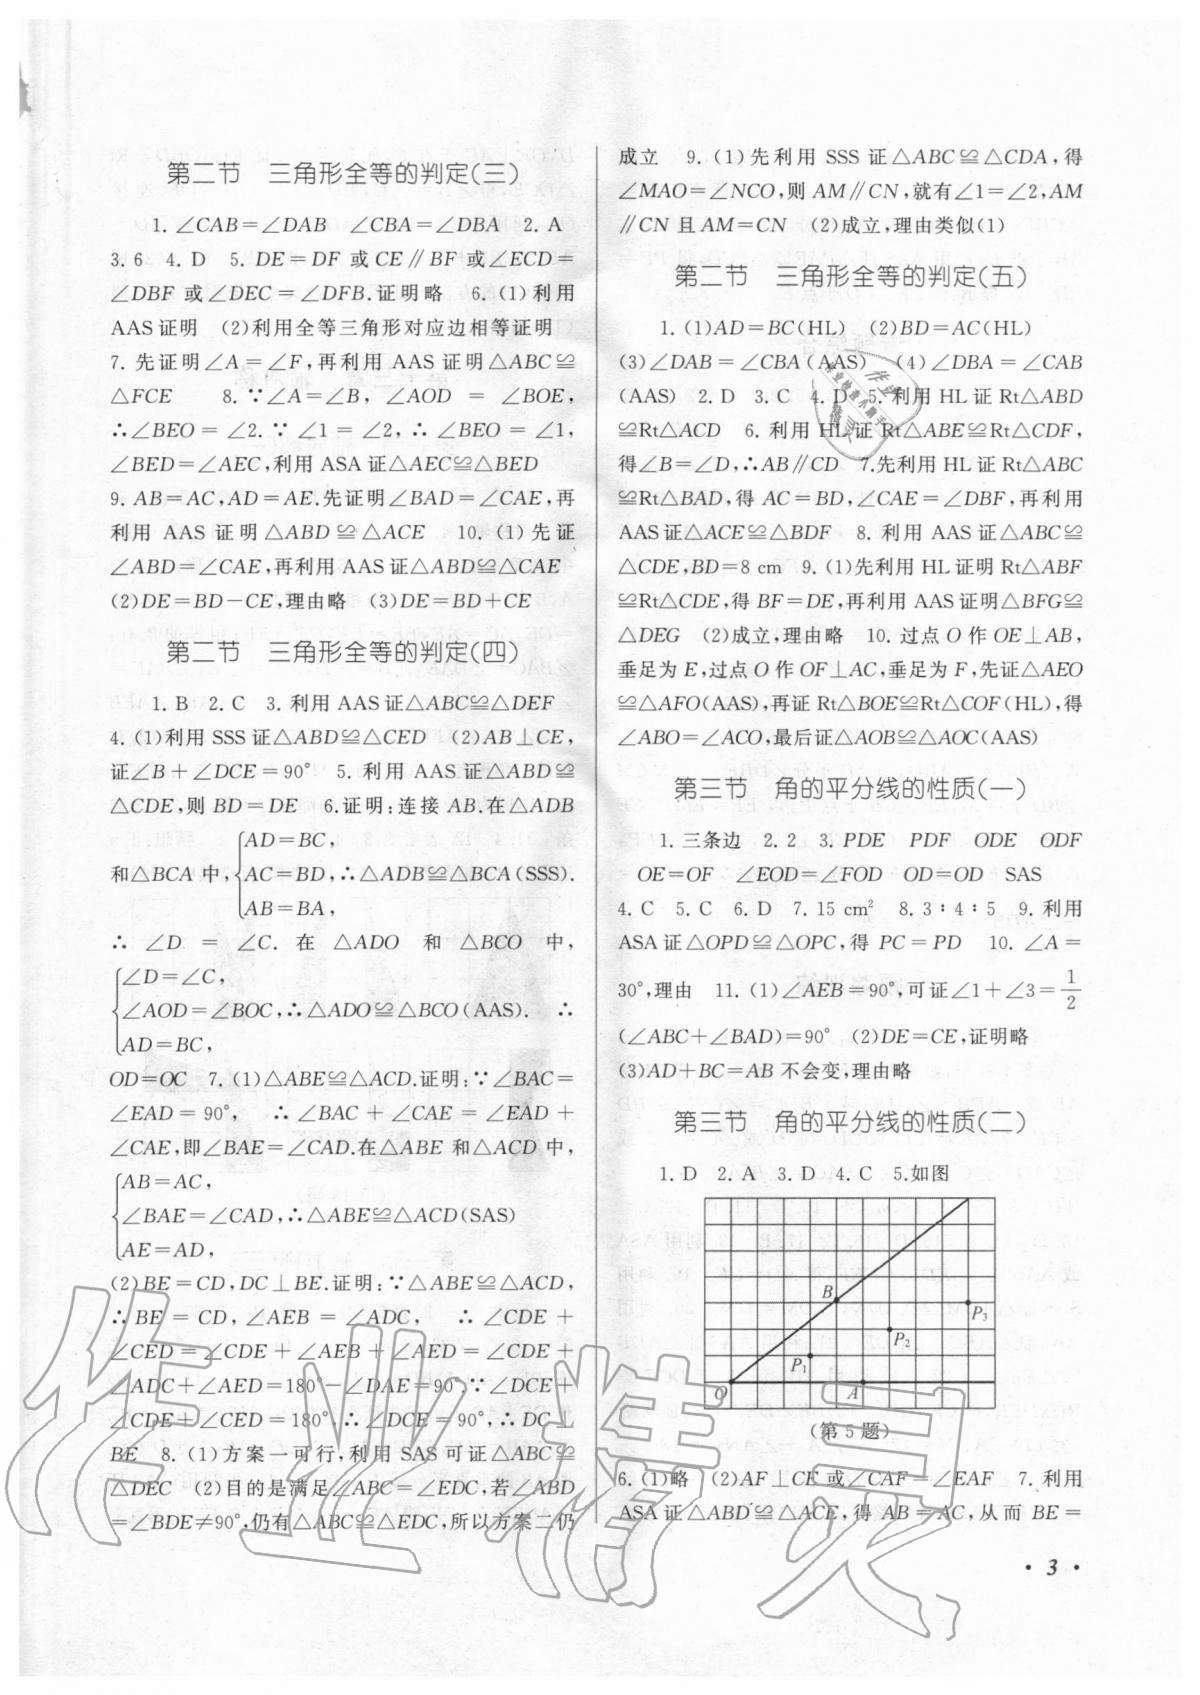 第二节　三角形全等的判定(三)
1. ∠CAB=∠DAB　∠CBA=∠DBA　2. A
3. 6　4. D　5. DE=DF 或 CE∥BF 或∠ECD=
∠DBF 或∠DEC=∠DFB.证明略　6. (1)利用
AAS证明　(2)利用全等三角形对应边相等证明
7. 先证明∠A=∠F,再利用 AAS 证明△ABC≌
△FCE　8. ∵∠A=∠B, ∠AOD=∠BOE,
∴∠BEO=∠2.∵∠1=∠2,∴∠BEO=∠1,
∠BED=∠AEC,利用 ASA 证△AEC≌△BED
9. AB=AC,AD=AE.先证明∠BAD=∠CAE,再
利用 AAS 证明△ABD≌△ACE　10. (1)先证
∠ABD=∠CAE,再利用 AAS 证△ABD≌△CAE
(2)DE=BD-CE,理由略　(3)DE=BD+CE
第二节　三角形全等的判定(四)
1. B　2. C　3. 利用 AAS 证△ABC≌△DEF
4. (1)利用 SSS 证△ABD≌△CED　(2)AB⊥CE,
证∠B+∠DCE=90°　5. 利用 AAS 证△ABD≌
△CDE,则 BD=DE　6.证明:连接 AB.在△ADB
AD=BC,
和△BCA 中, AC=BD,∴△ADB≌△BCA(SSS).
AB=BA,
∴∠D=∠C. 在 △ADO 和 △BCO 中,
∠D=∠C,
∠AOD=∠BOC,∴△ADO≌△BCO(AAS). ∴
AD=BC,
OD=OC　7. (1)△ABE≌△ACD.证明:∵∠BAC=
∠EAD=90°, ∴∠BAC+∠CAE=∠EAD+
∠CAE,即∠BAE=∠CAD.在△ABE 和△ACD 中,
AB=AC,
∠BAE=∠CAD,∴△ABE≌△ACD(SAS)
AE=AD,
(2)BE=CD,DC⊥BE.证明:∵△ABE≌△ACD,
∴BE=CD,∠AEB=∠ADC, ∴∠CDE+
∠CED=∠CDE+∠AEB+∠AED=∠CDE+
∠ADC+∠AED=180°-∠DAE=90°.∵∠DCE+
∠CDE+∠CED=180°,∴∠DCE=90°,∴DC⊥
BE　8. (1)方案一可行,利用 SAS 可证△ABC≌
△DEC　(2)目的是满足∠ABC=∠EDC,若∠ABD
=∠BDE≠90°,仍有△ABC≌△EDC,所以方案二仍
成立　9. (1)先利用 SSS 证△ABC≌△CDA,得
∠MAO=∠NCO,则 AM∥CN,就有∠1=∠2,AM
∥CN 且 AM=CN　(2)成立,理由类似(1)
第二节　三角形全等的判定(五)
1. (1)AD=BC(HL)　(2)BD=AC(HL)
(3)∠DAB=∠CBA(AAS)　(4)∠DBA=∠CAB
(AAS)　2. D　3. C　4. D　5. 利用 HL 证 Rt△ABD
≌Rt△ACD　6. 利用 HL 证 Rt△ABE≌Rt△CDF,
得∠B=∠D,∴AB∥CD　7.先利用 HL 证 Rt△ABC
≌Rt△BAD,得 AC=BD,∠CAE=∠DBF,再利用
AAS 证△ACE≌△BDF　8. 利用 AAS 证△ABC≌
△CDE,BD=8 cm　9. (1)先利用 HL 证明 Rt△ABF
≌Rt△CDE,得 BF=DE,再利用 AAS 证明△BFG≌
△DEG　(2)成立,理由略　10. 过点 O 作 OE⊥AB,
垂足为 E,过点 O 作 OF⊥AC,垂足为 F,先证△AEO
≌△AFO(AAS),再证 Rt△BOE≌Rt△COF(HL),得
∠ABO=∠ACO,最后证△AOB≌△AOC(AAS)
第三节　角的平分线的性质(一)
1. 三条边　2. 2　3. PDE　PDF　ODE　ODF
OE=OF　∠EOD=∠FOD　OD=OD　SAS
4. C　5. C　6. D　7. 15 cm²　8. 3∶4∶5　9. 利用
ASA 证△OPD≌△OPC,得 PC=PD　10. ∠A=
30°,理由　11. (1)∠AEB=90°,可证∠1+∠3=1/2
(∠ABC+∠BAD)=90°　(2)DE=CE,证明略
(3)AD+BC=AB 不会变,理由略
第三节　角的平分线的性质(二)
1. D　2. A　3. D　4. C　5.如图
B
P₃
P₂
P₁
O　A
(第 5 题)
6. (1)略　(2)AF⊥CE 或∠CAF=∠EAF　7. 利用
ASA 证△ABD≌△ACE,得 AB=AC,从而 BE=
· 3 ·
作业精灵